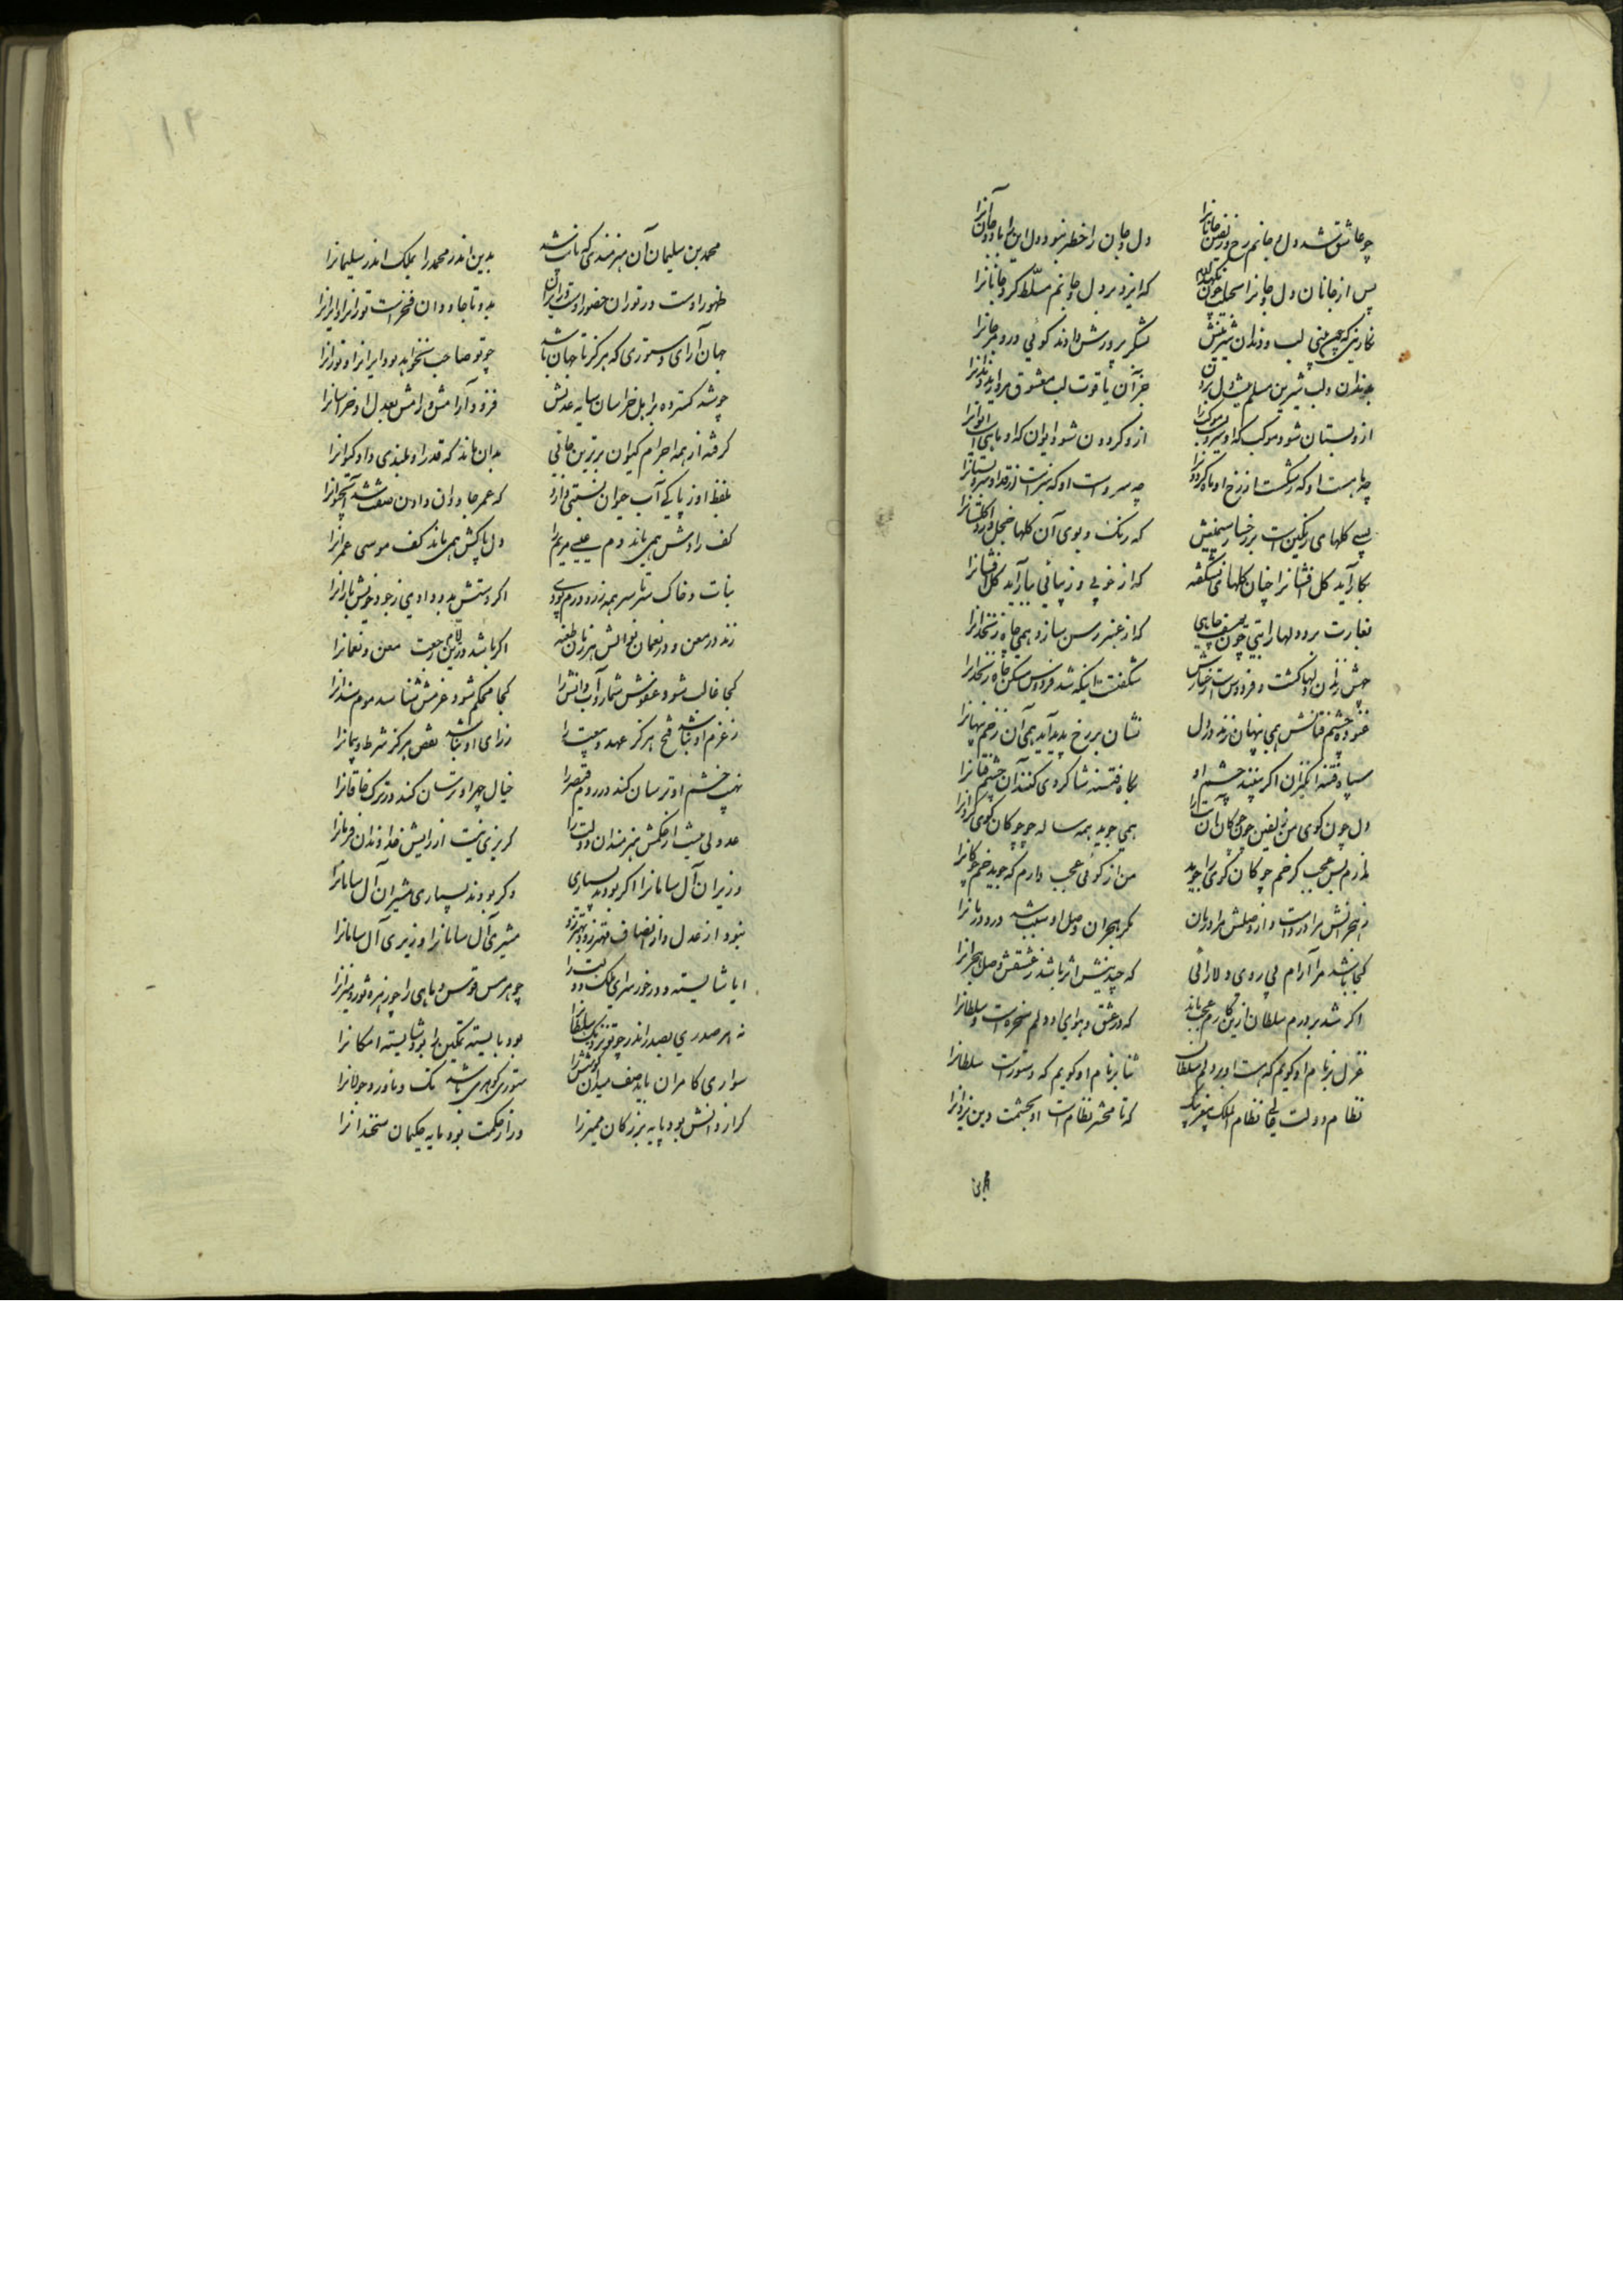 چو عاشق شد دل و جانم رخ و زلفین جانانرا دل و جان را خطر نبود دل این را باد و جان آنرا
پس از جانان دل و جانرا نگهدارم چون که ایزد بر دل و جانم مسلط کرد جانانرا
نگارینی که چون بینی لب و دندان شیرینش بشکر پرورش دادند گوئی در و مرجانرا
بدندان و لب شیرین مسلم شد دل بردن جز آن یاقوت لب معشوق مروارید دندانرا
ازو بستان شود موکب که او سروست موکب را ازو گردون شود ایوان که او ماهست ایوانرا
چه ماهست او که رشکست از رخ او ماه گردونرا چه سروست او که شرمست از قد او سرو بستانرا
بسی گلهای رنگین است بر رخسار سیمینش که رنگ و بوی آن گلها خجل دارد گلستانرا
بکار آید گل افشانرا چنان گلهای نشکفته که از خوبی و زیبائی بیاراید گل افشانرا
بغارت برد دلها را بتی چون یوسف چاهی که از عنبر رسن سازد همی چاه زنخدانرا
چهش زندان دلها گشت و فردوس است رخسارش شگفتست اینکه شد فردوس مسکن چاه زندانرا
غنوده چشم فتانش همی پنهان زند در دل نشان بر رخ پدید آید همی آن زخم پنهانرا
سپاه فتنه انگیزان اگر بینند چشم او بگاه فتنه شاگردی کنند آن چشم فتانرا
دل چون گوی من زلفین چون چوگان آن بت را همی جوید همه ساله چو چوگان گوی گردانرا
ندارم بس عجب گر خم چوگان گوی را جوید من از گوئی عجب دارم که جوید خم چوگانرا
ز هجرانش مرا دردست و از وصلش مرا درمان مگر هجران و وصل او سبب شد درد و درمانرا
کجا باشد مرا آرام بی روی دلارائی که چندینش اثر باشد ز عشقش وصل و هجرانرا
اگر شد بر درم سلطان ازین کارم عجب ناید که در عشق و هوای او دلم سخره است سلطانرا
غزل بر نام او گویم که هست او بر دلم سلطان ثنا بر نام او گویم که دستورست سلطانرا
نظام دولت عالی نظام الملک پیغمبر که تا محشر نظامست او بحشمت دین یزدانرا
محمد بن
محمد بن سلیمان آن هنرمندی که نائب شد بدین اندر محمد را بملک اندر سلیمانرا
ظهور اوست در توران حضور اوست در ایران بدو تا جاودان فخرست تورانرا و ایرانرا
جهان آرای دستوری که هرگز تا جهان باشد چو تو صاحب نخواهد بود ایرانرا و تورانرا
چو شد گسترده بر اهل خراسان سایه عدلش فزود آرامش و رامش بعدل او خراسانرا
گرفته از همه اجرام کیوان برترین جائی بدان ماند که قدر او بلندی داد کیوانرا
بلفظ او ز پاکی آب حیوان نسبتی دارد که عمر جاودان دادن صفت شد آب حیوانرا
کف رادش همی ماند دم عیسی مریم را دل پاکش همی ماند کف موسی عمرانرا
نبات و خاک سرتاسر همه زر و درم بودی اگر دستش بدو دادی ز جود خویش بارانرا
زند در معن و در نعمان نوالش هر زمان طعنه اگر باشد درین ایام رجعت معن و نعمانرا
کجا غالب شود عفوش شمارد آب آتش را کجا محکم شود عزمش شناسد موم سندانرا
ز عزم او نباشد فسخ هرگز عهد و بیعت را ز رای او نباشد نقض هرگز شرط و پیمانرا
نهیب خشم او ترسان کند در روم قیصر را خیال چهر او ترسان کند در ترک خاقانرا
عدولی نیست از حکمش هنرمندان دولت را گریزی نیست از رایش خداوندان فرمانرا
وزیران آل سامانرا اگر بودند بسیاری وگر بودند بسیاری مشیران آل سامانرا
نبود از عدل و از انصاف مهتر زو و بهتر زو مشیری آل سامانرا وزیری آل سامانرا
ایا شایسته و درخور سرای ملک و دولت را چو برجیس قوس و ماهی را چو زهره ثور و میزانرا
نه هر صدری بصدر اندر چو تو نزدیک سلطانرا بود بایسته تمکین را بود شایسته امکانرا
سواری کامران باید صف میدان کوشش را ستوری گوهری باشد تک و ناورد و جولانرا
گر از دانش بود پایه بزرگان ممیز را ور از حکمت بود مایه حکیمان سخندانرا
۱۴